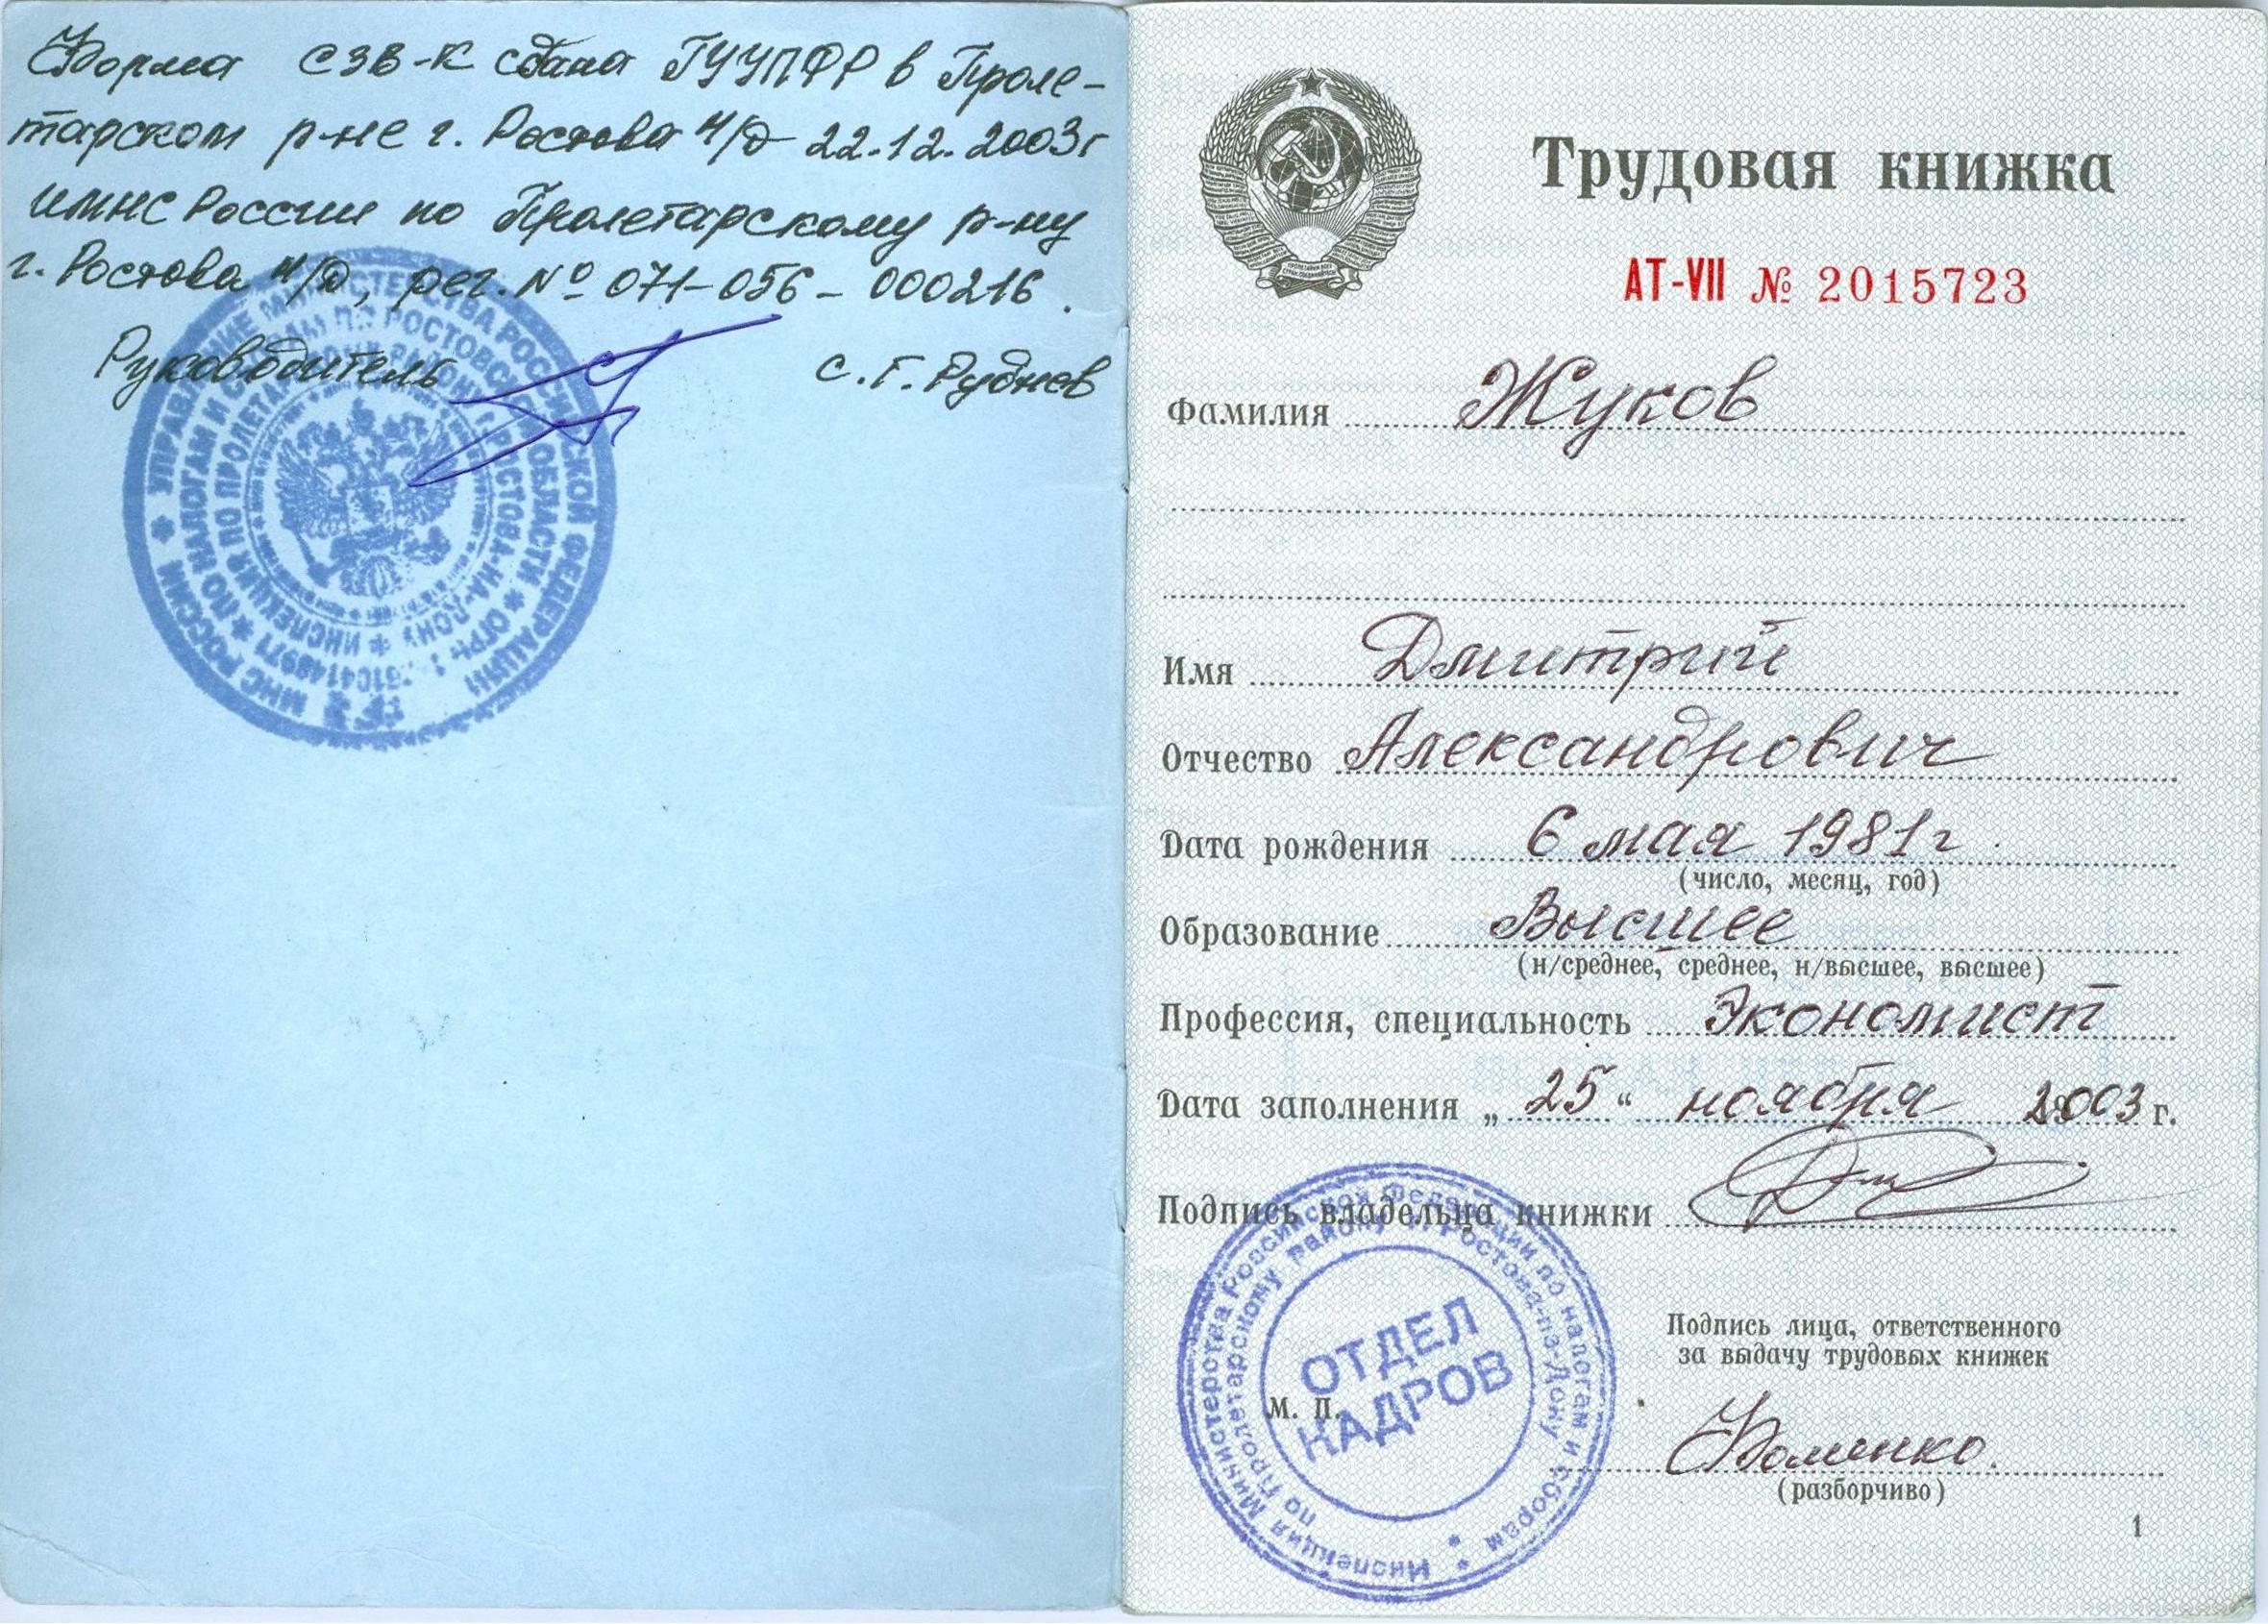 Форма СЗВ-К сдана ГУУПФР в Проле-
тарском р-не г. Ростова н/Д 22.12.2003г
ИМНС России по Пролетарскому р-ну
г. Ростова н/Д, рег. № 071-056-000216.
Руководитель С.Г. Руднев
МНС РОССИИ * УПРАВЛЕНИЕ МИНИСТЕРСТВА РОССИЙСКОЙ ФЕДЕРАЦИИ
* ПО НАЛОГАМ И СБОРАМ ПО РОСТОВСКОЙ ОБЛАСТИ * ОГРН
* ИНСПЕКЦИЯ ПО ПРОЛЕТАРСКОМУ РАЙОНУ Г. РОСТОВА-НА-ДОНУ
Трудовая книжка
АТ-VII № 2015723
Фамилия Жуков
Имя Дмитрий
Отчество Александрович
Дата рождения 6 мая 1981г.
(число, месяц, год)
Образование Высшее
(н/среднее, среднее, н/высшее, высшее)
Профессия, специальность Экономист
Дата заполнения „25“ ноября 2003 г.
Подпись владельца книжки
Инспекция Министерства Российской Федерации по налогам и сборам *
по Пролетарскому району г. Ростова-на-Дону *
ОТДЕЛ
КАДРОВ
М. П.
Подпись лица, ответственного
за выдачу трудовых книжек
Фоменко.
(разборчиво)
1